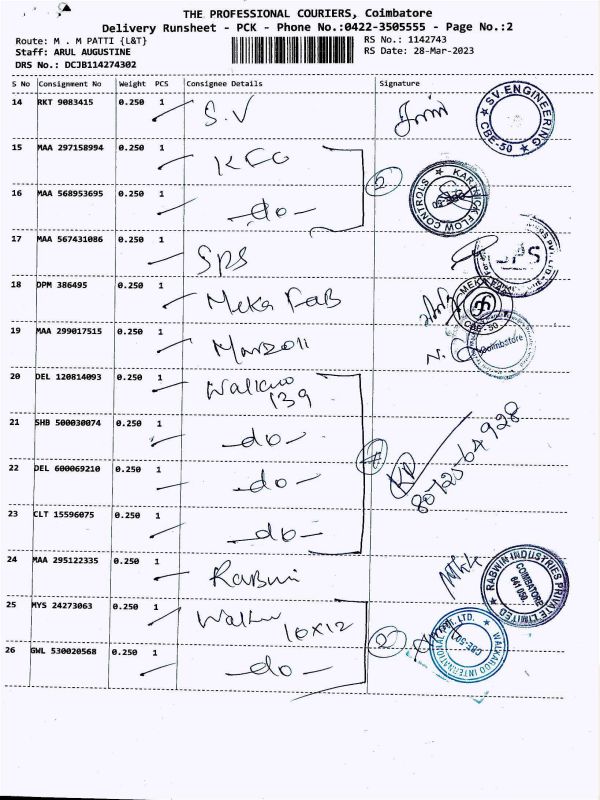 THE PROFESSIONAL COURIERS, Coimbatore
Delivery Runsheet - PCK - Phone No.:0422-3505555 - Page No.:2
Route: M . M PATTI {L&T}
RS No.: 1142743
Staff: ARUL AUGUSTINE
RS Date: 28-Mar-2023
DRS No.: DCJB114274302
S No Consignment No Weight PCS Consignee Details Signature
14 RKT 9083415 0.250 1 S.V
SV ENGINEERING ★ CBE-50 ★
15 MAA 297158994 0.250 1
16 MAA 568953695 0.250 1 -do-
KARTHICK FLOW CONTROLS
17 MAA 567431086 0.250 1 SPS
SPS
18 DPM 386495 0.250 1 Meka Fab
MEKA FAB CBE-50
19 MAA 299017515 0.250 1
Coimbatore
20 DEL 120814093 0.250 1 Walkaroo
139
21 SHB 500030074 0.250 1 -do-
22 DEL 600069210 0.250 1 -do-
8072564928
23 CLT 15596075 0.250 1 -do-
24 MAA 295122335 0.250 1 Rabwin
RABWIN INDUSTRIES PRIVATE LIMITED ★ COIMBATORE 641 050.
25 MYS 24273063 0.250 1
10x12
WALKAROO INTERNATIONAL PVT. LTD. CBE-50
26 GWL 530020568 0.250 1 -do-